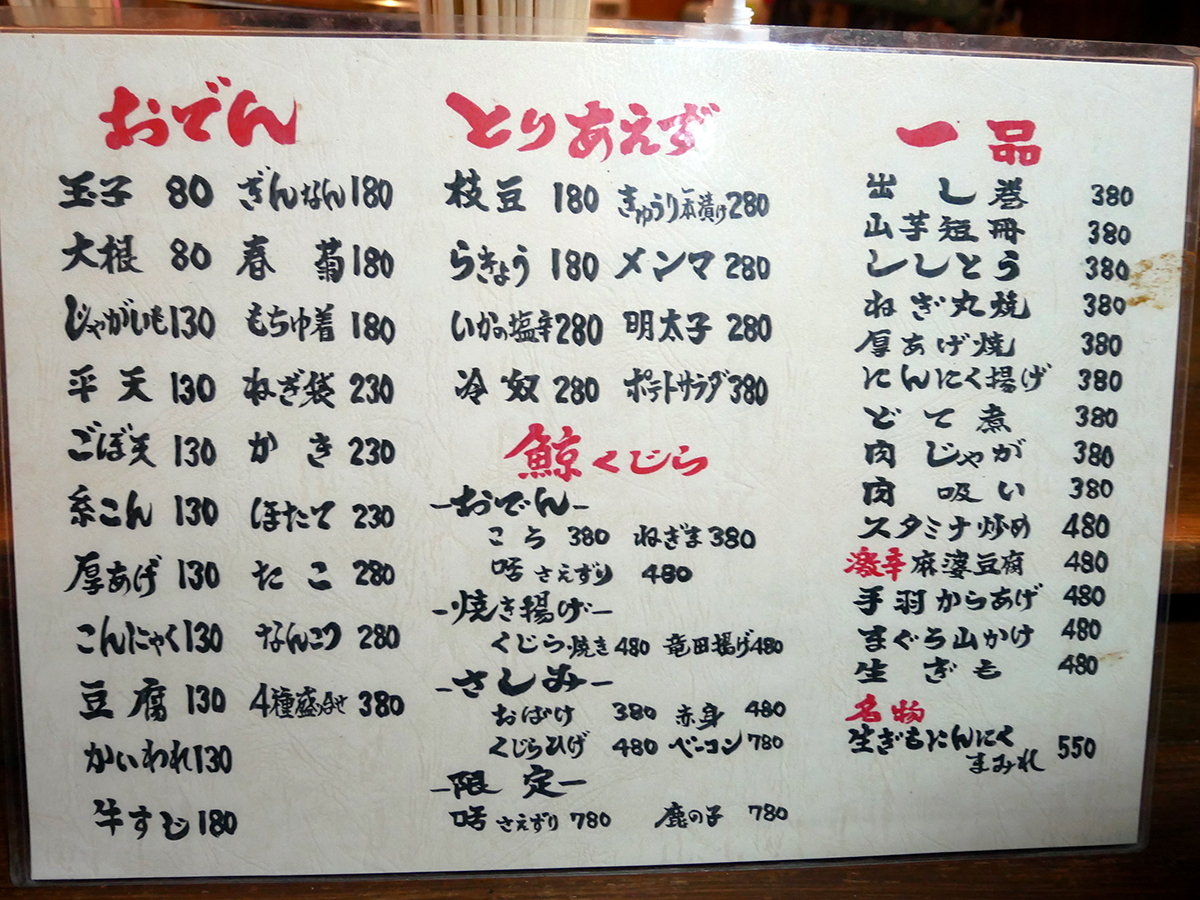 おでん
玉子 80 ぎんなん 180
大根 80 春菊 180
じゃがいも 130 もちゆ着 180
平天 130 ねぎ袋 230
ごぼ天 130 かき 230
糸こん 130 ほたて 230
厚あげ 130 たこ 280
こんにゃく 130 なんこつ 280
豆腐 130 4種盛合せ 380
かいわれ 130
牛すじ 180
とりあえず
枝豆 180 きゅうり一本漬け 280
らきょう 180 メンマ 280
いかの塩辛 280 明太子 280
冷奴 280 ポテトサラダ 380
鯨くじら
-おでん-
ころ 380 ねぎま 380
さえずり 480
-焼き揚げ-
くじら焼き 480 竜田揚げ 480
-さしみ-
おばけ 380 赤身 480
くじらひげ 480 ベーコン 780
-限定-
さえずり 780 鹿の子 780
一品
出し巻 380
山芋短冊 380
ししとう 380
ねぎ丸焼 380
厚あげ焼 380
にんにく揚げ 380
どて煮 380
肉じゃが 380
肉吸い 380
スタミナ炒め 480
激辛麻婆豆腐 480
手羽からあげ 480
まぐろ山かけ 480
生ぎも 480
名物
生ぎもにんにく
まみれ 550